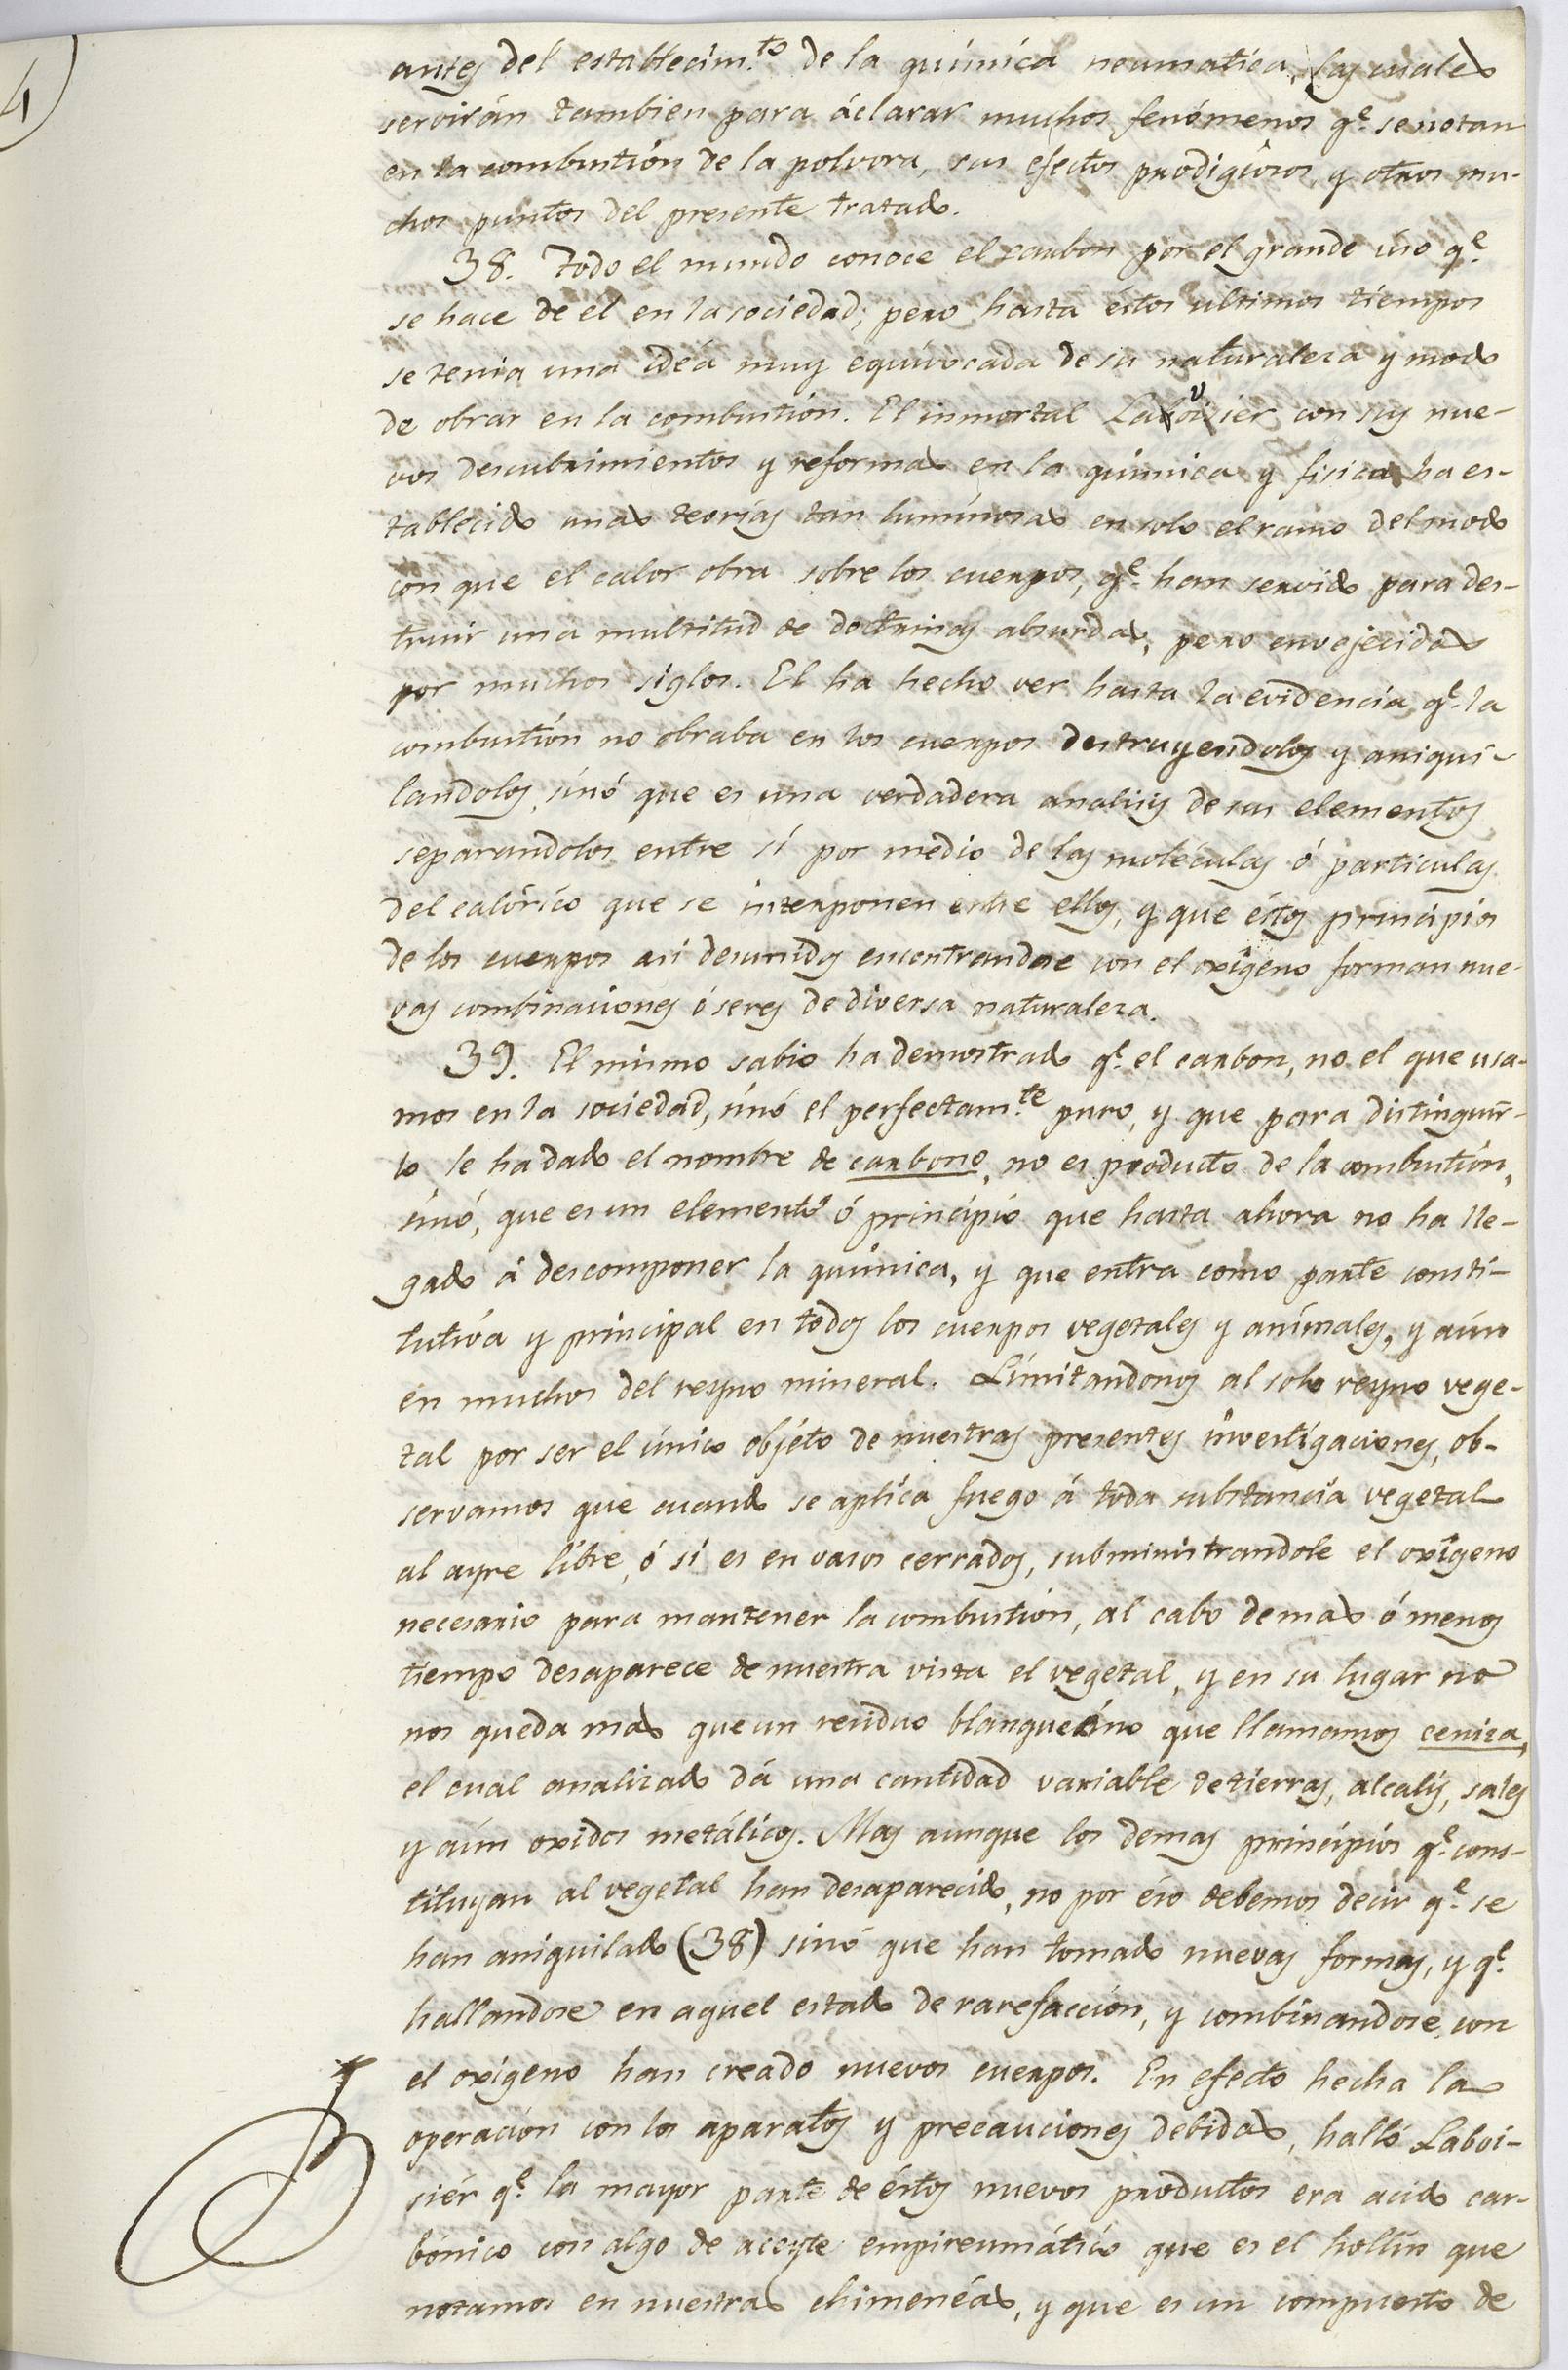 4
antes del establecim.to de la química neumatica, las cuales
servirán tambien para áclarar muchos fenómenos q.e se notan
en la combustión de la polvora, sus efectos prodigiosos, y otros mu-
chos puntos del presente tratado.
38. Todo el mundo conoce el carbon por el grande uso q.e
se hace de el en la sociedad; pero hasta éstos ultimos tiempos
se tenia una idéa muy equivocada de su naturaleza y modo
de obrar en la combustión. El inmortal Lavoisier con sus nue-
vos descubrimientos y reformas en la química y fisica ha es-
tablecido unas teorías tan luminosas en solo el ramo del modo
con que el calor obra sobre los cuerpos, q.e han servido para des-
truir una multitud de doctrinas absurdas, pero envejecidas
por muchos siglos. El ha hecho ver hasta la evidencia q.e la
combustión no obraba en los cuerpos destruyendolos y aniqui-
landolos, sinó que es una verdadera analisis de sus elementos
séparandolos entre sí por medio de las moléculas ó particulas
del calórico que se interponen entre ellos, y que éstos principios
de los cuerpos asi desunidos encontrandose con el oxigeno forman nue-
vas combinaciones ó seres de diversa naturaleza.
39. El mismo sabio ha demostrado q.e el carbon, no el que usa-
mos en la sociedad, sinó el perfectam.te puro, y que para distinguir-
lo le ha dado el nombre de carbono, no es producto de la combustión,
sinó, que es un elemento ó principio que hasta ahora no ha lle-
gado á descomponer la química, y que entra como parte consti-
tutiva y principal en todos los cuerpos vegetales y animales, y aún
en muchos del reyno mineral. Limitandonos al solo reyno vege-
tal por ser el único objéto de nuestras presentes investigaciones, ob-
servamos que cuando se aplica fuego á toda substancia vegetal
al ayre libre, ó si es en vasos cerrados, subministrandole el oxigeno
necesario para mantener la combustión, al cabo de mas ó menos
tiempo desaparece de nuestra vista el vegetal, y en su lugar no
nos queda mas que un residuo blanquecino que llamamos ceniza,
el cual analizado dá una cantidad variable de tierras, alcalis, sales
y aún oxidos metálicos. Mas aunque los demas principios q.e cons-
tituyan al vegetal han desaparecido, no por éso debemos decir q.e se
han aniquilado (38) sinó que han tomado nuevas formas, y q.e
hallandose en aquel estado de rarefacción, y combinandose con
el oxigeno han creado nuevos cuerpos. En efecto hecha la
operación con los aparatos y precauciones debidas, halló Laboi-
siér q.e la mayor parte de éstos nuevos productos era acido car-
bónico con algo de aceyte empireumático que es el hollín que
notamos en nuestras chimenéas, y que es un compuesto de